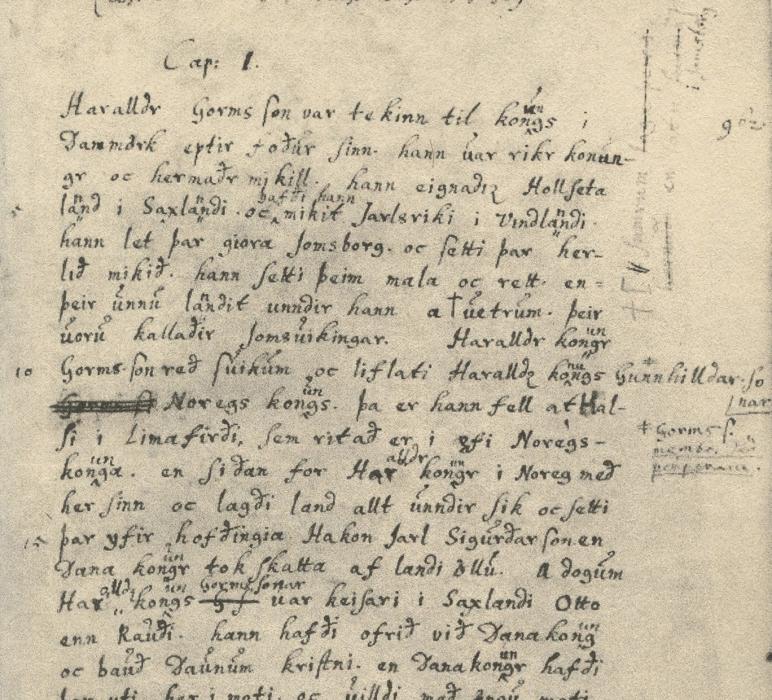 Cap: 1.
Haralldr Gorms son var tekinn til kongs i
Danmörk eptir foður sinn. hann uar rikr konun-
gr oc hermaðr mikill. hann eignadiz Hollseta
land i Saxlandi. oc hafði hann mikit Jarlsriki i Vindlandi.
hann let þar giora Jomsborg. oc setti þar her-
lið mikið. hann setti þeim mala oc rett. en=
þeir unnu landit unndir hann a uetrum. þeir
uoru kallaðir Jomsuikingar. Haralldr kongr
10 Gorms son reð suikum oc liflati Haralldz kongs Gunnhilldar. so
nar
Noregs kongs. þa er hann fell at Hal-
si i Limafirði, sem ritað er i yfi Noregs-
† Gorms s.
konga. en siðan for Haralldr kongr i Noreg með
her sinn oc lagði land allt unndir sik oc setti
15 þar yfir hofðingia Hakon Jarl Sigurðar son en
Dana kongr tok skatta af landi öllu. A dogum
Haralldz kongs Gormssonar uar keisari i Saxlandi Otto
enn Rauði. hann hafði ofrið við Dana kong
oc bauð Daunum kristni. en Dana kongr hafði
her i moti. oc uilldi með